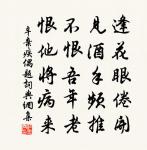 逢花眼倦開
見酒手頻推
不恨吾年老
恨他將病來
辛棄疾偶題詞典網集